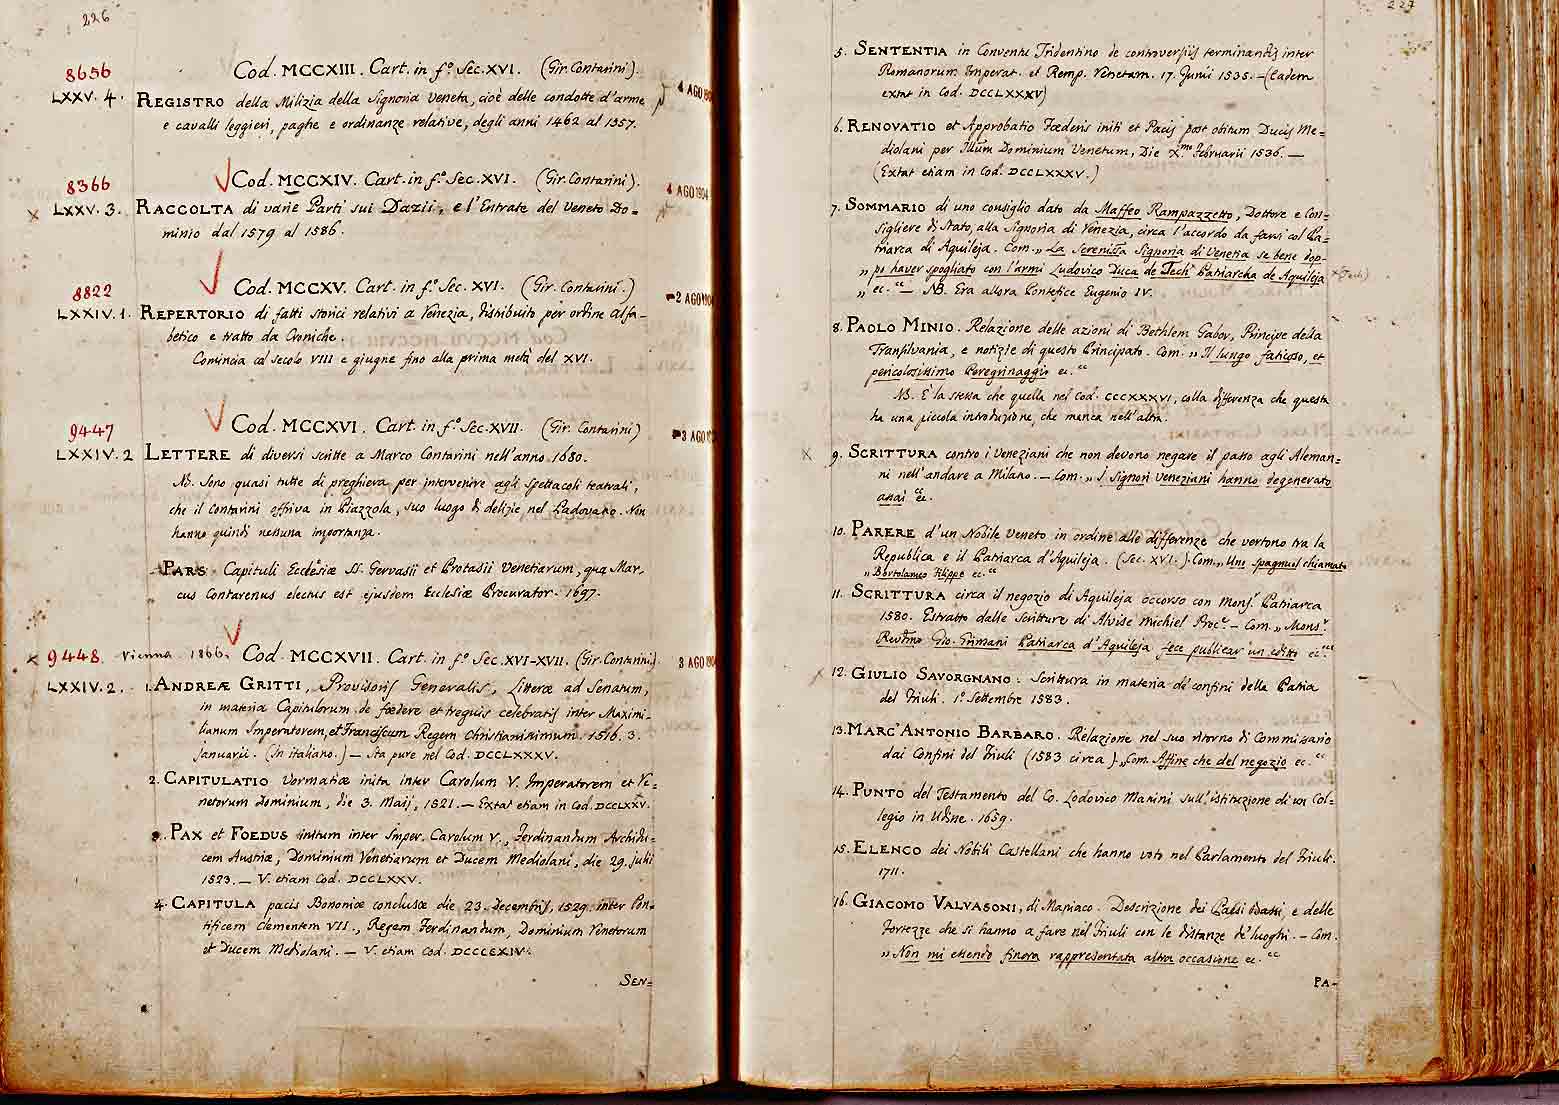 226
8656
Cod. MCCXIII. Cart. in f.º Sec. XVI. (Gir. Contarini).
4 AGO 190
LXXV. 4. REGISTRO della Milizia della Signoria Veneta, cioè delle condotte d'arme
e cavalli leggieri, paghe e ordinanze relative, degli anni 1462 al 1557.
8366
Cod. MCCXIV. Cart. in f.º Sec. XVI. (Gir. Contarini).
4 AGO 1904
x LXXV. 3. RACCOLTA di varie Parti sui Dazii, e l'Entrate del Veneto Do=
minio dal 1579 al 1586.
8822
Cod. MCCXV. Cart. in f.º Sec. XVI. (Gir. Contarini.)
2 AGO 190
LXXIV. 1. REPERTORIO di fatti storici relativi a Venezia, distribuito per ordine alfa-
betico e tratto da Croniche.
Comincia col secolo VIII e giugne fino alla prima metà del XVI.
9447
Cod. MCCXVI. Cart. in f.º Sec. XVII. (Gir. Contarini)
3 AGO 190
LXXIV. 2 LETTERE di diversi scritte a Marco Contarini nell'anno 1680.
NB. Sono quasi tutte di preghiera per intervenire agli spettacoli teatrali,
che il Contarini offriva in Piazzola, suo luogo di delizie, nel Padovano. Non
hanno quindi nessuna importanza.
- PARS Capituli Ecclesiæ SS. Gervasii et Protasii Venetiarum, qua Mar-
cus Contarenus electus est ejusdem Ecclesiæ Procurator. 1697.
x 9448. Vienna 1866. Cod. MCCXVII. Cart. in f.º Sec. XVI-XVII. (Gir. Contarini).
3 AGO 190
LXXIV. 2. 1. ANDREÆ GRITTI, Provisoris Generalis, Litteræ ad Senatum,
in materia Capitulorum de fœdere et treguis celebratis inter Maximi-
lianum Imperatorem, et Franciscum Regem Christianissimum. 1516. 3.
Januarii. (In italiano.) — Sta pure nel Cod. DCCLXXXV.
2. CAPITULATIO Vormatiæ inita inter Carolum V. Imperatorem et Ve-
netorum Dominium, die 3. Maij, 1521. — Extat etiam in Cod. DCCLXXV.
3. PAX et FOEDUS initum inter Imper. Carolum V., Ferdinandum Archidu-
cem Austriæ, Dominium Venetiarum et Ducem Mediolani, die 29. Julii
1523. — V. etiam Cod. DCCLXXV.
4. CAPITULA pacis Bononiæ conclusæ die 23. Decembris, 1529. inter Pon-
tificem Clementem VII., Regem Ferdinandum, Dominium Venetorum
et Ducem Mediolani. — V. etiam Cod. DCCCLXIV.
SEN=
227
5. SENTENTIA in Conventu Tridentino de controversiis terminandis inter
Romanorum Imperat. et Remp. Venetam. 17. Junii 1535. — (Eadem
extat in Cod. DCCLXXXV)
6. RENOVATIO et Approbatio Fœderis initi et Pacis post obitum Ducis Me=
diolani per Illum Dominium Venetum, Die X.mo Februarii 1536. —
(Extat etiam in Cod. DCCLXXXV.)
7. SOMMARIO di uno consiglio dato da Maffeo Rampazzetto, Dottore e Con=
sigliere di Stato, alla Signoria di Venezia, circa l'accordo da farsi col Pa=
triarca di Aquileja. Com. „ La Serenissa Signoria di Venetia se bene dop-
„ po haver spogliato con l'armi Ludovico Duca de Tech Patriarcha de Aquileja x (Tech)
„ ec. “ — NB. Era allora Pontefice Eugenio IV.
8. PAOLO MINIO. Relazione delle azioni di Bethlem Gabor, Principe della
Transilvania, e notizie di questo Principato. Com. „ Il lungo faticoso, et
pericolosissimo Peregrinaggio ec. “
NB. È la stessa che quella nel Cod. CCCXXXVI, colla differenza che questa
ha una piccola introduzione, che manca nell'altra.
x 9. SCRITTURA contro i Veneziani che non devono negare il passo agli Aleman=
ni nell'andare a Milano. — Com. „ I Signori Veneziani hanno degenerato
assai “ ec.
10. PARERE d'un Nobile Veneto in ordine alle differenze che vertono tra la
Republica e il Patriarca d'Aquileja. (Sec. XVI.) Com. „ Uno Spagnuol chiamato
„ Bortolameo Filippe ec. “
11. SCRITTURA circa il negozio di Aquileja occorso con Monsr. Patriarca
1580. Estratto dalle Scritture di Alvise Michiel Procr. — Com. „ Monsr.
Revdmo Gio. Grimani Patriarca d'Aquileja fece publicar un editto ec. “
12. GIULIO SAVORGNANO: Scrittura in materia di confini della Patria
del Friuli. 1º. Settembre 1583.
13. MARC'ANTONIO BARBARO. Relazione nel suo ritorno di Commissario
dai Confini del Friuli (1583 circa). „ Com. Affine che del negozio ec. “
14. PUNTO del Testamento del Co. Lodovico Manini sull'istituzione di un Col=
legio in Udine. 1659.
15. ELENCO dei Nobili Castellani che hanno voto nel Parlamento del Friuli.
1711.
16. GIACOMO VALVASONI, di Maniaco. Descrizione dei Passi bassi, e delle
Fortezze che si hanno a fare nel Friuli con le distanze de' luoghi. — Com.
„ Non mi essendo finora rappresentata altra occasione ec. “
PA-